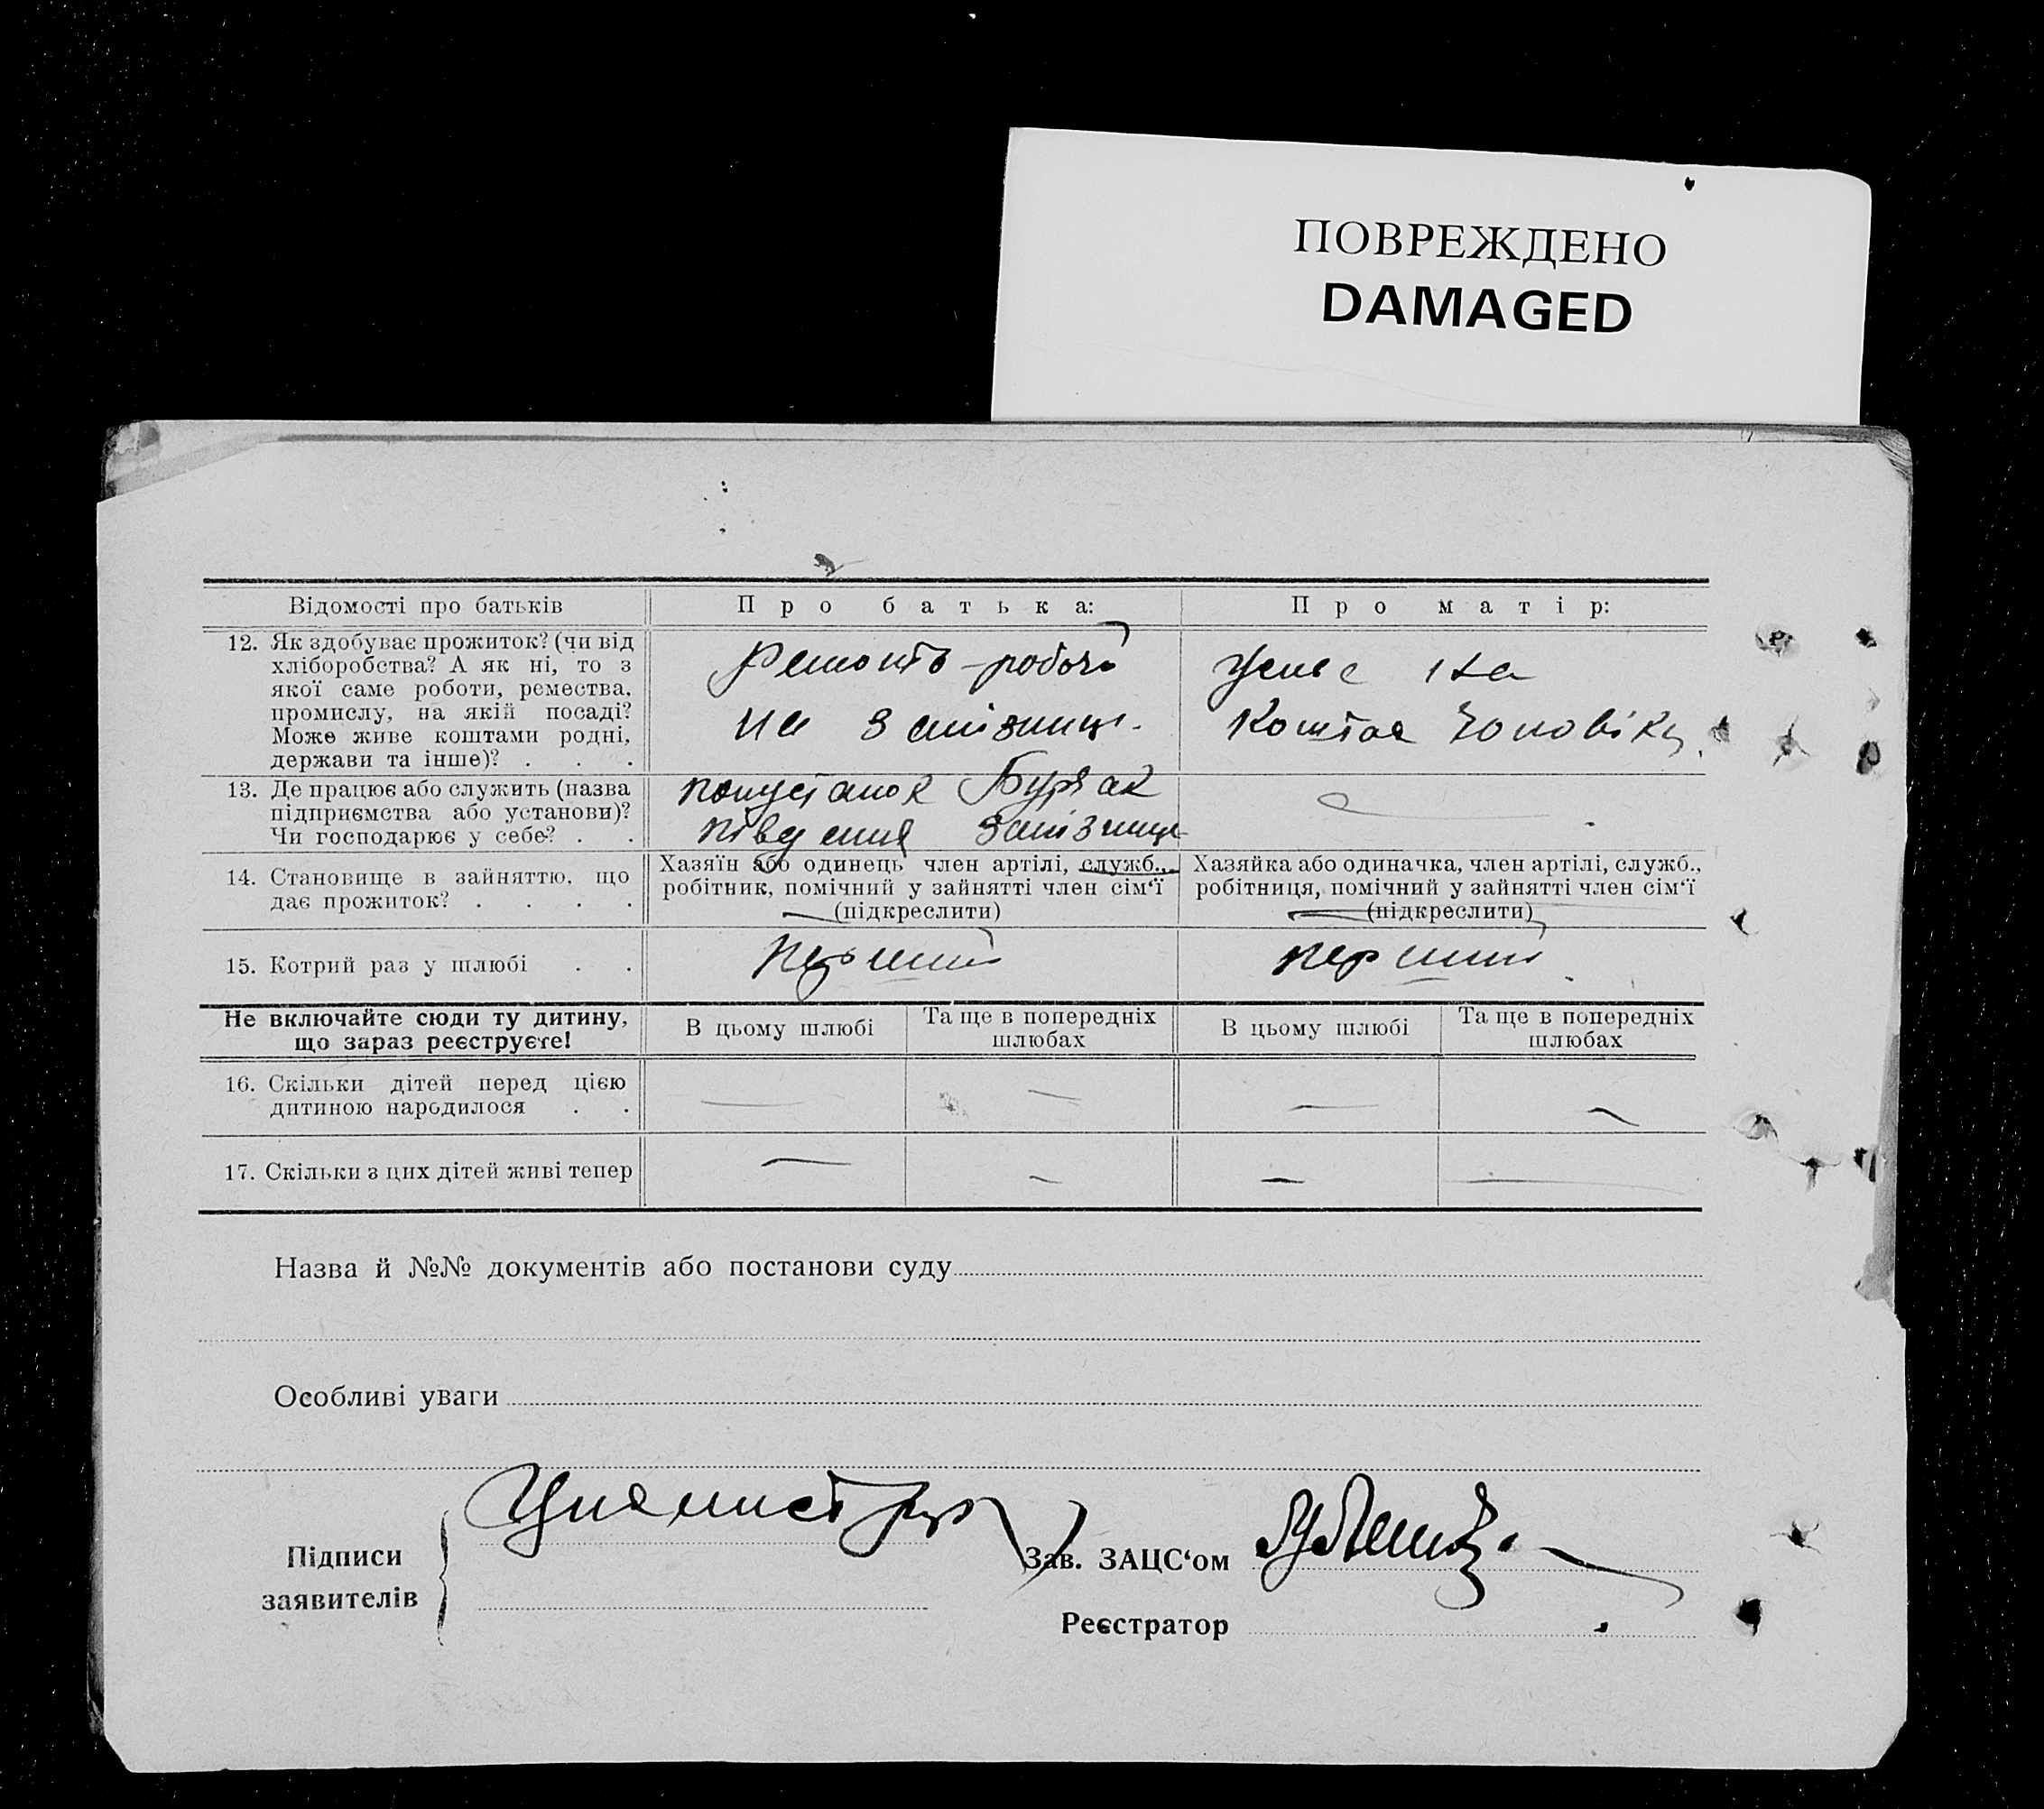 ПОВРЕЖДЕНО
DAMAGED
Відомості про батьків
Про батька:
Про матір:
12. Як здобуває прожиток? (чи від
хліборобства? А як ні, то з
якої саме роботи, ремества,
промислу, на якій посаді?
Може живе коштами родні,
держави та інше)? . . .
Ремонтв-робочі
на залізниці.
живе на
коштая чоловіка.
13. Де працює або служить (назва
підприємства або установи)?
Чи господарює у себе? . .
полустанок Буряк
південня залізниця
14. Становище в зайняттю, що
дає прожиток? . . . .
Хазяїн або одинець член артілі, служб.,
робітник, помічний у зайнятті член сім‘ї
(підкреслити)
Хазяйка або одиначка, член артілі, служб.,
робітниця, помічний у зайнятті член сім‘ї
(підкреслити)
15. Котрий раз у шлюбі . .
перший
перший
Не включайте сюди ту дитину,
що зараз реєструєте!
В цьому шлюбі
Та ще в попередніх
шлюбах
В цьому шлюбі
Та ще в попередніх
шлюбах
16. Скільки дітей перед цією
дитиною народилося . .
— — — —
17. Скільки з цих дітей живі тепер
— — — —
Назва й №№ документів або постанови суду
Особливі уваги
Підписи
заявителів
Зав. ЗАЦС‘ом
Реєстратор